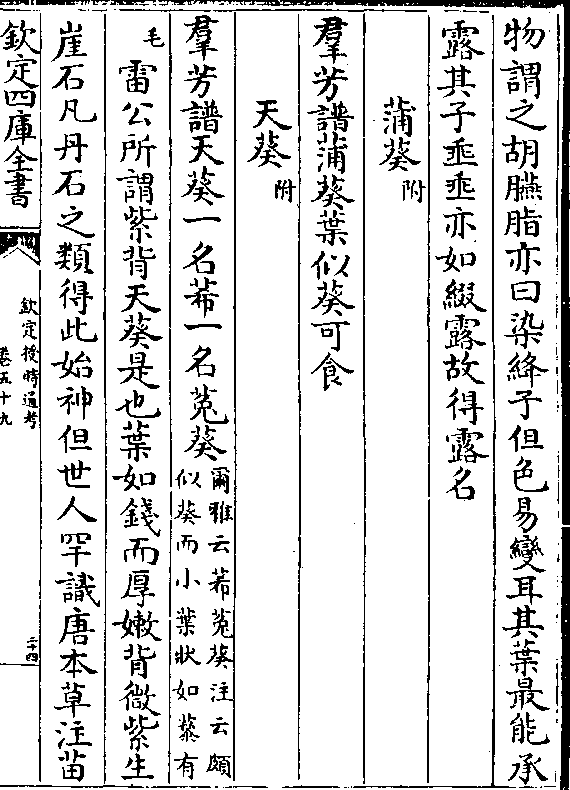 物謂之胡臙脂亦曰染絳子但色易變耳其葉最能承
露其子垂垂亦如綴露故得露名
蒲葵附
羣芳譜蒲葵葉似葵可食
天葵附
羣芳譜天葵一名莃一名菟葵爾雅云莃菟葵注云頗
似葵而小葉狀如藜有
毛
雷公所謂紫背天葵是也葉如錢而厚嫩背微紫生
崖石凡丹石之類得此始神但世人罕識唐本草注苗
欽定四庫全書
欽定授時通考
卷五十九
二十四